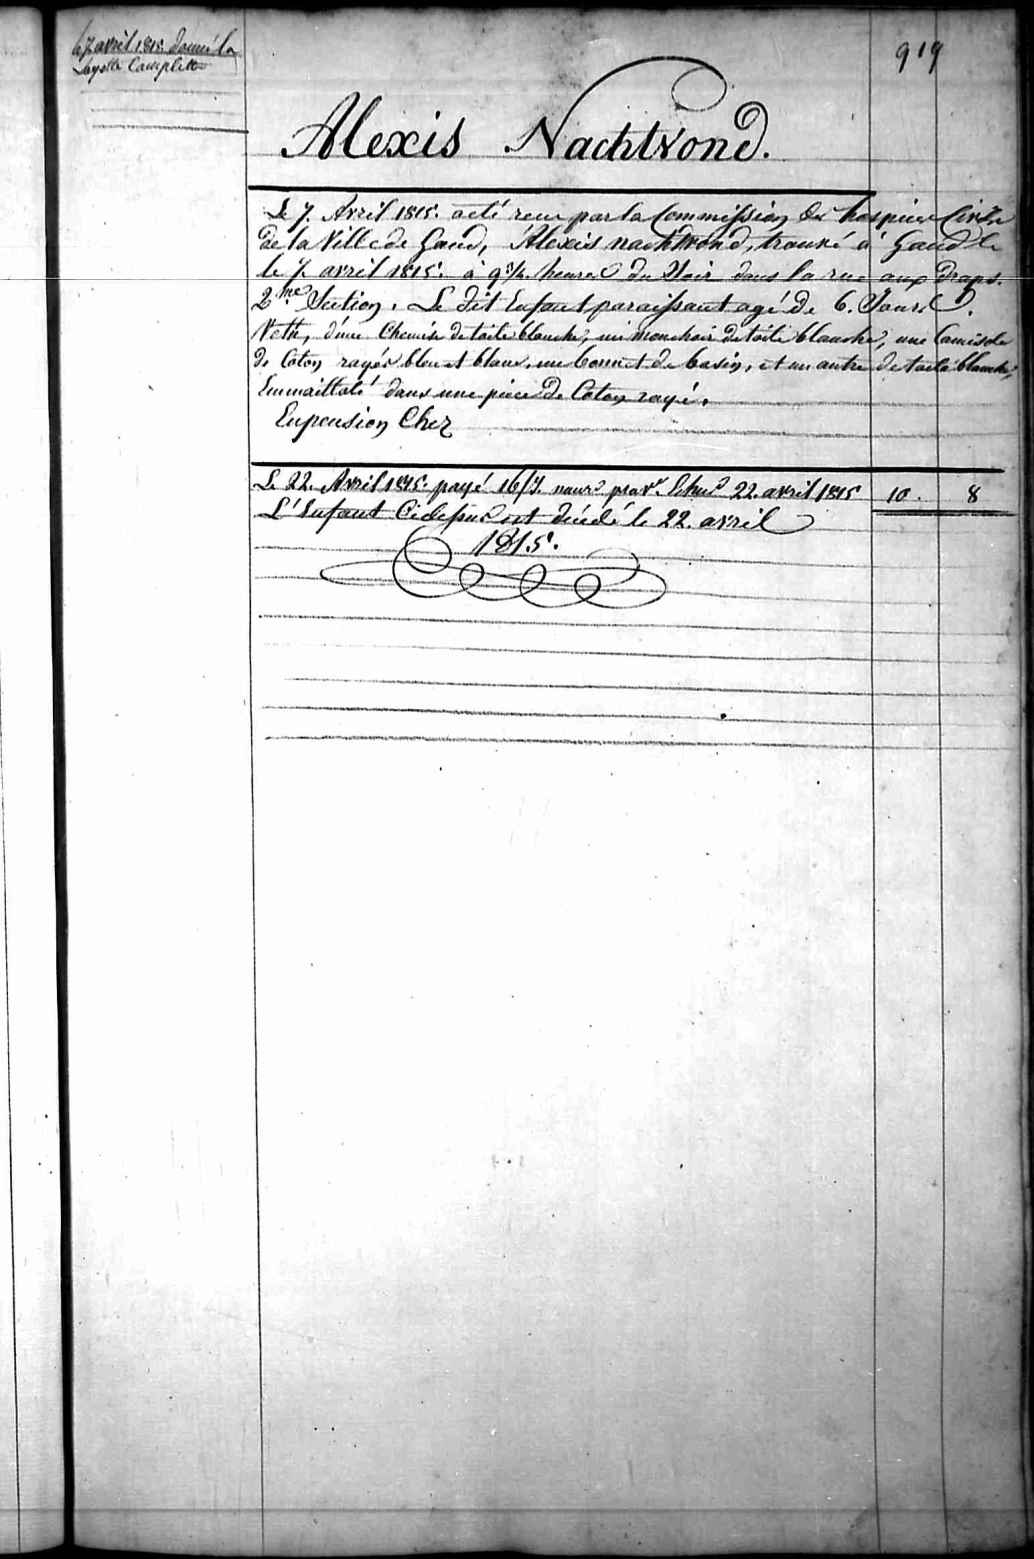 le 7 avril 1815. donné la
layette Complette
919
Alexis Nachtrond.
Le 7. Avril 1815. a été recu par la Commission des hospices Civils
de la Ville de Gand, Alexis nachtrond, trouvé à Gand le
le 7. avril 1815. à 9 heures du Soir dans la rue aux Draps.
2me Section. Le dit Enfant paraissant agé de 6. Jours.
Vettu, d'une Chemise de toile blanche, un mouchoir de toile blanche, une Camisole
de Coton rayés bleu et blanc, un bonnet de basin, et un autre de toile blanche,
Emmailloté dans une pièce de Coton rayé.
En pension Chez
Le 22. Avril 1815. payé 16/J. nour.e prov.e 22. avril 1815 10. 8
L'Enfant Cidessus est décédé le 22. avril
1815.